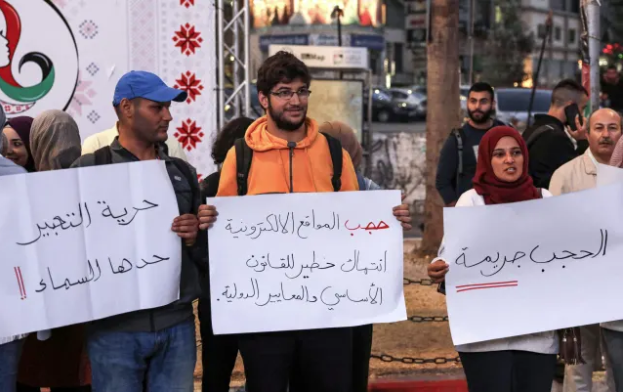 الحجب جريمة
حجب المواقع الالكترونية
انتهاك خطير للقانون
الأساسي والمعايير الدولية.
حرية التعبير
حدها السماء !!